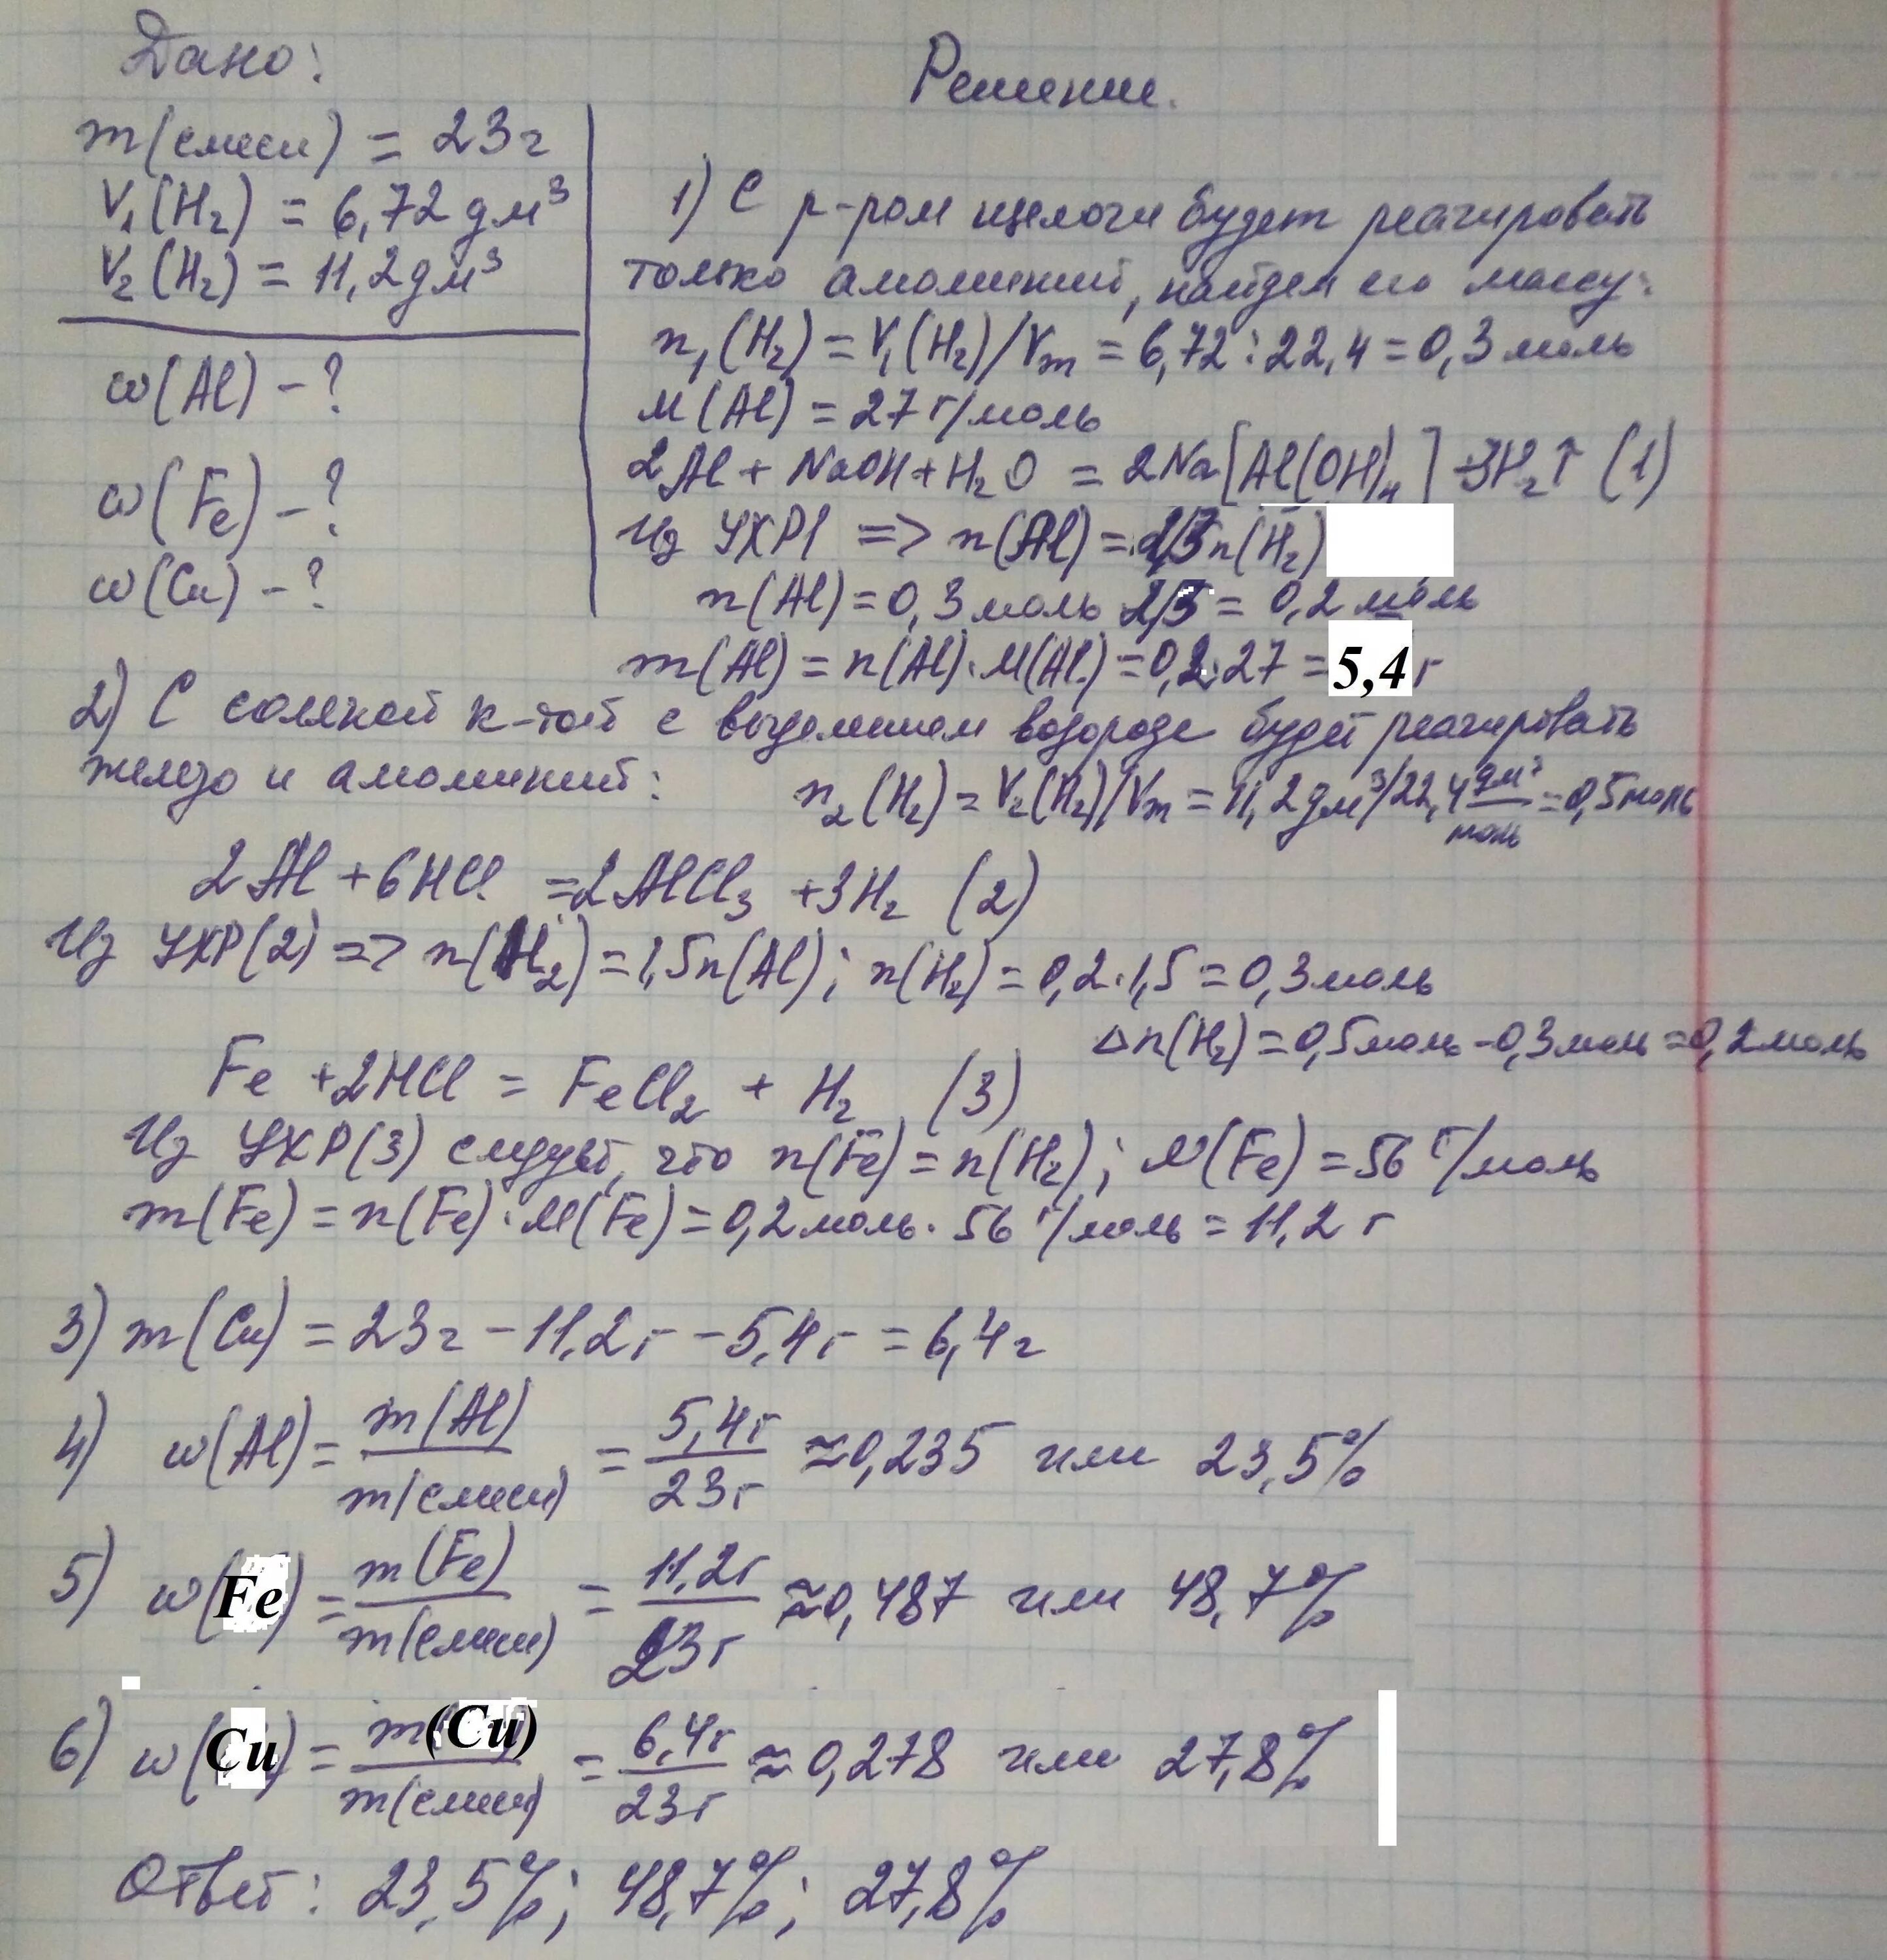 Дано:
m(смеси) = 23г
V₁(H₂) = 6,72 дм³
V₂(H₂) = 11,2 дм³
ω(Al) - ?
ω(Fe) - ?
ω(Cu) - ?
Решение.
1) С р-ром щелочи будет реагировать
только алюминий, найдем его массу:
n₁(H₂) = V₁(H₂)/Vm = 6,72 : 22,4 = 0,3 моль
M(Al) = 27 г/моль
2Al + NaOH + H₂O = 2Na[Al(OH)₄] + 3H₂↑ (1)
Из УХР1 => n(Al) = 2/3n(H₂)
n(Al) = 0,3 моль 2/3 = 0,2 моль
m(Al) = n(Al)·M(Al) = 0,2·27 = 5,4 г
2) С соляной к-той с выделением водорода будет реагировать
железо и алюминий:
n₂(H₂) = V₂(H₂)/Vm = 11,2 дм³/22,4 дм³/моль = 0,5 моль
2Al + 6HCl = 2AlCl₃ + 3H₂ (2)
Из УХР(2) => n(H₂) = 1,5n(Al); n(H₂) = 0,2·1,5 = 0,3 моль
Δn(H₂) = 0,5 моль - 0,3 моль = 0,2 моль
Fe + 2HCl = FeCl₂ + H₂ (3)
Из УХР(3) следует, что n(Fe) = n(H₂); M(Fe) = 56 г/моль
m(Fe) = n(Fe)·M(Fe) = 0,2 моль · 56 г/моль = 11,2 г
3) m(Cu) = 23г - 11,2г - 5,4г = 6,4г
4) ω(Al) = m(Al)/m(смеси) = 5,4г/23г ≈ 0,235 или 23,5%
5) ω(Fe) = m(Fe)/m(смеси) = 11,2г/23г ≈ 0,487 или 48,7%
6) ω(Cu) = m(Cu)/m(смеси) = 6,4г/23г ≈ 0,278 или 27,8%
Ответ: 23,5%; 48,7%; 27,8%